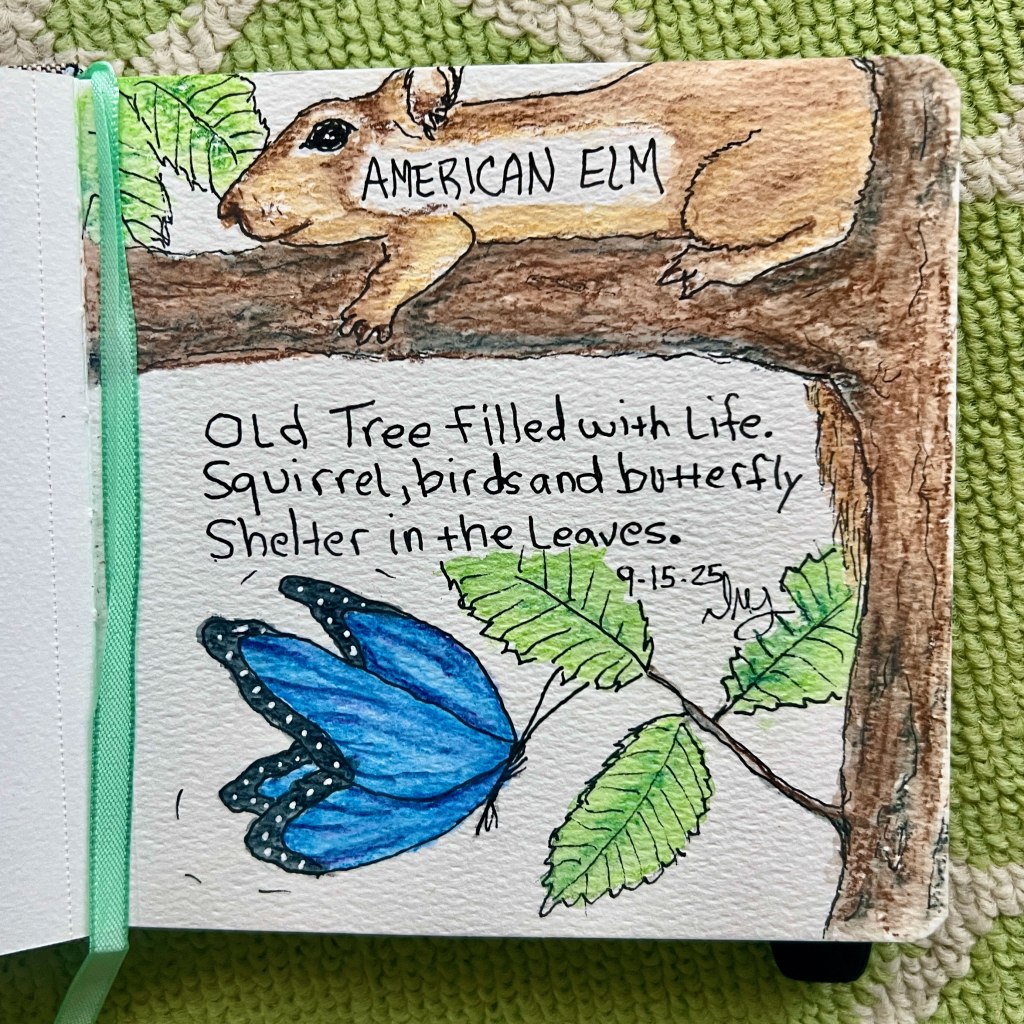 AMERICAN ELM
Old Tree filled with Life.
Squirrel, birds and butterfly
Shelter in the Leaves.
9-15-25